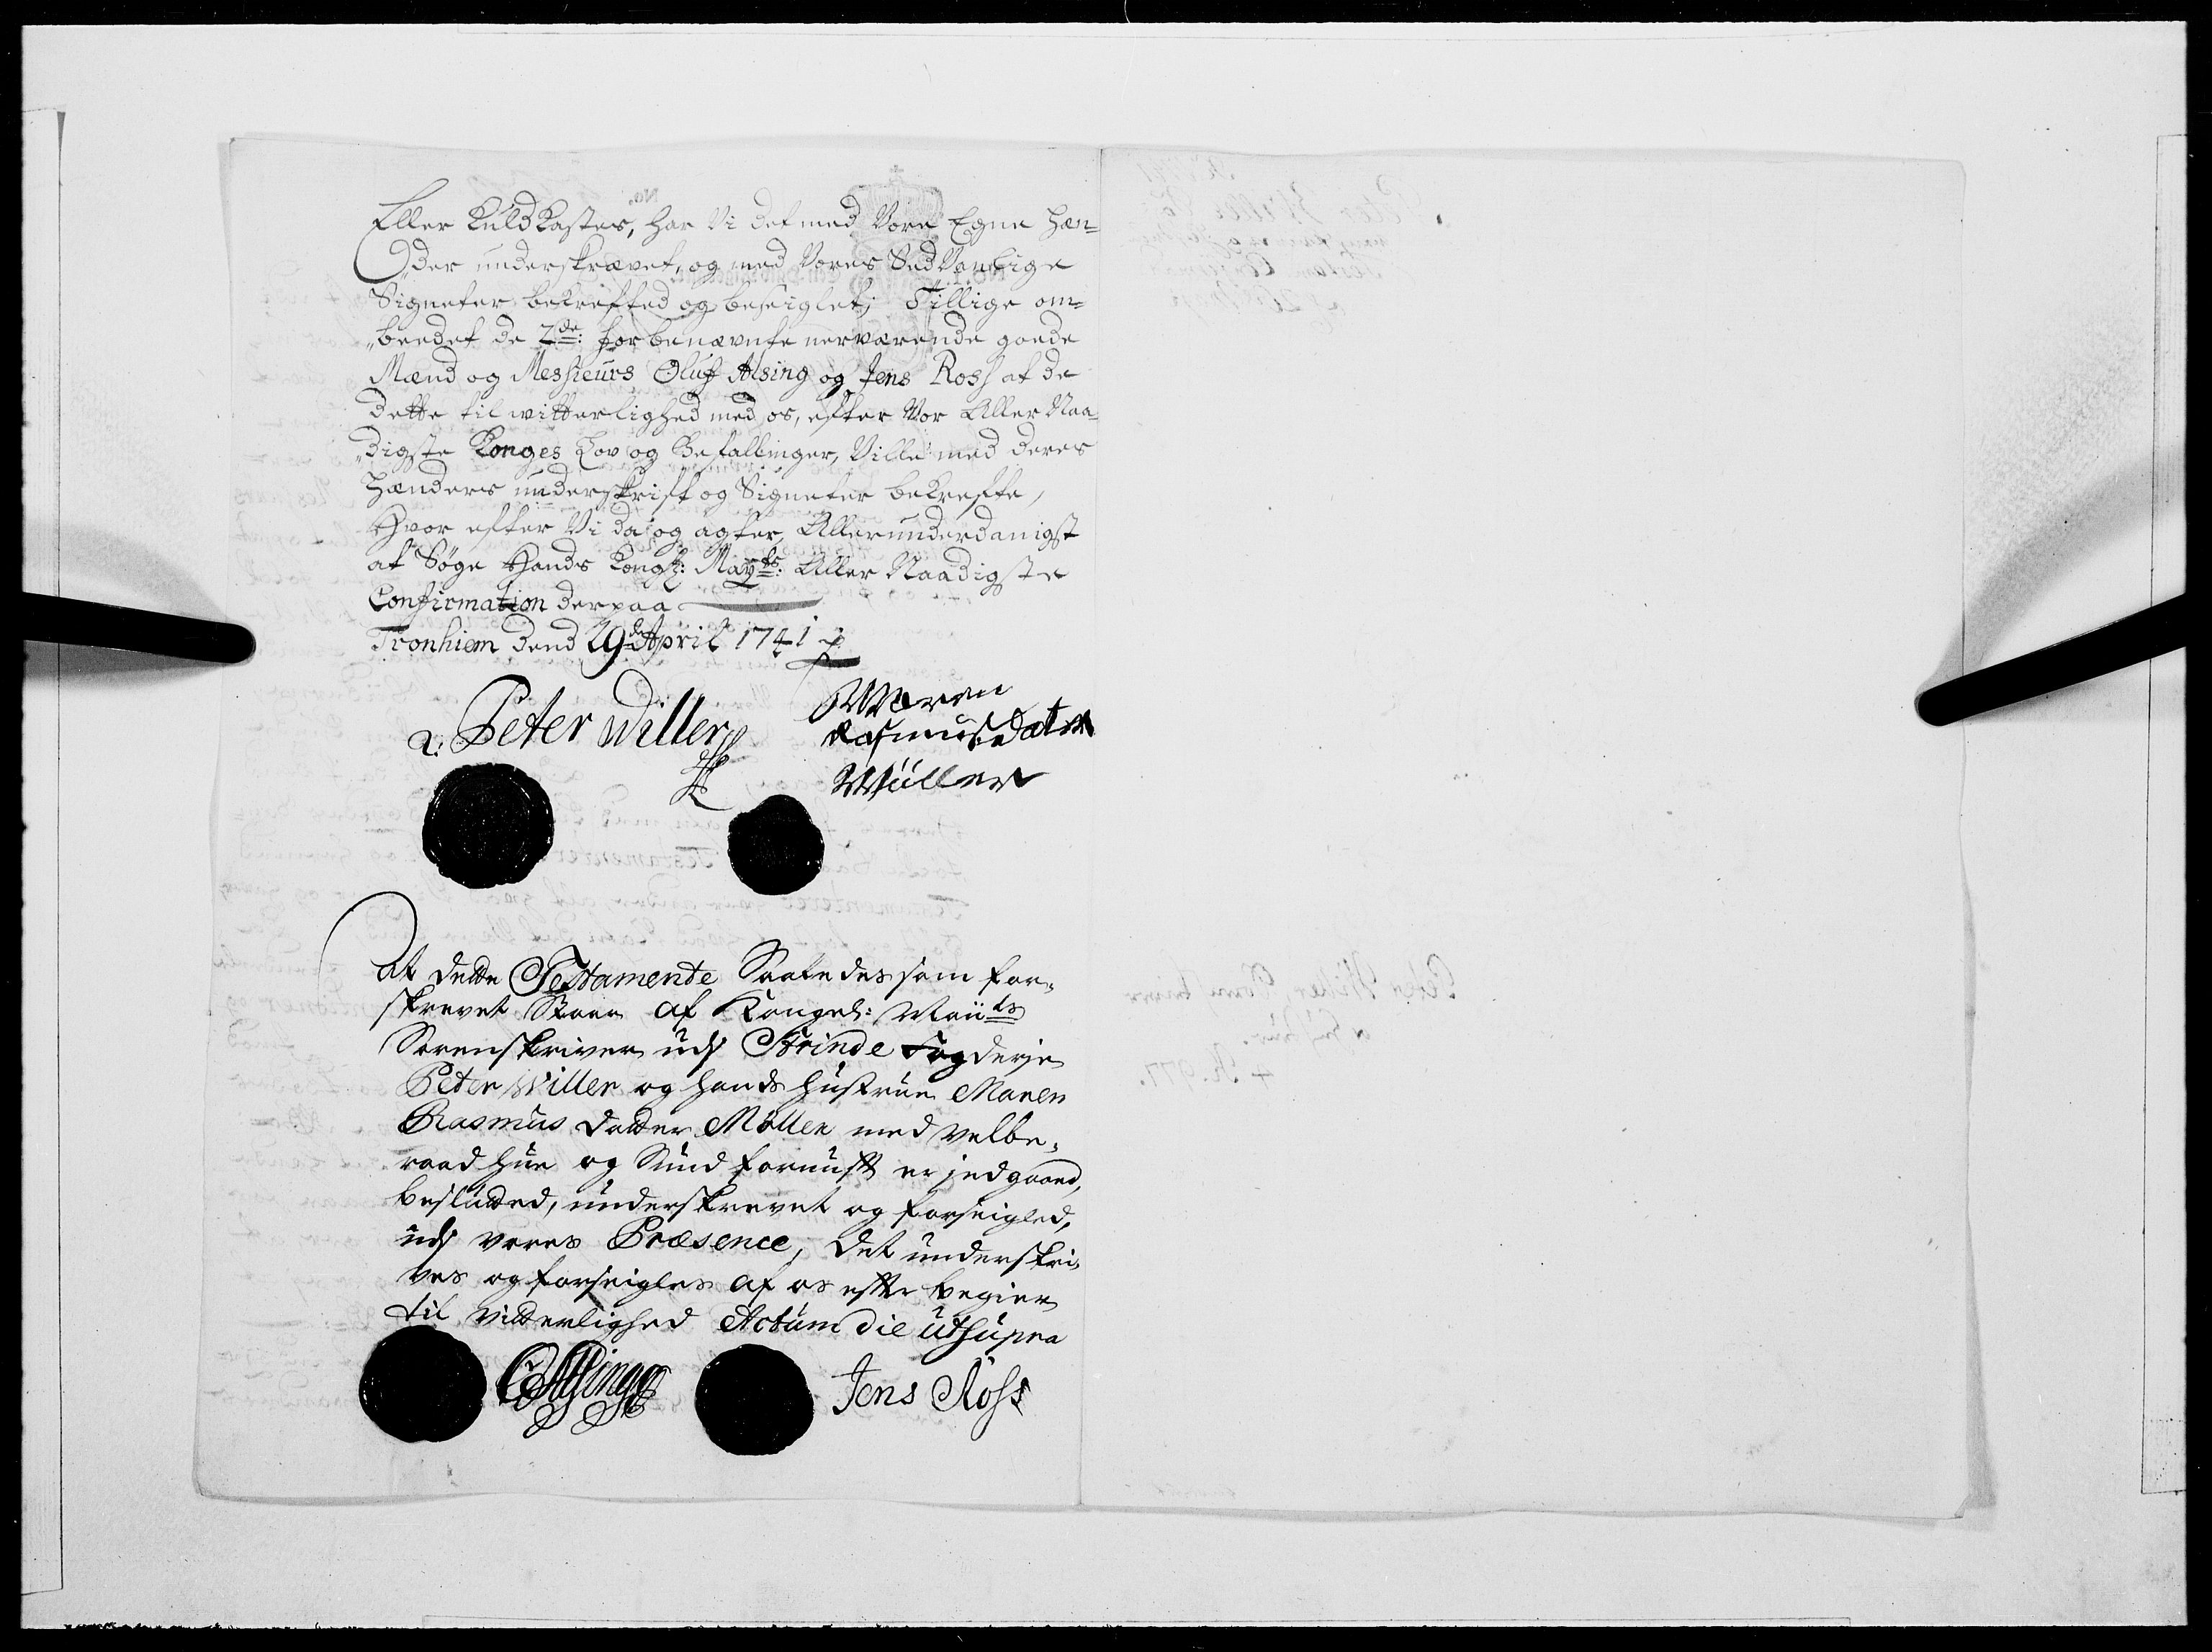 Eller Kuld Kastes, har Vi det med Vore Egne Hæn-
„der underskrævet, og med Vores Sed Vanlige
Signeter bekræfted og beseiglet; Tillige om-
„beedet de 2de: for benævnte nerværende goede
Mænd og Messieurs Oluf Alsing og Jens Ross at de
dette til witterlighed med os, efter Vor Aller Naa-
„digste Konges Lov og Befallinger, Ville med deres
Hænders underskrift og Signeter bekrefte,
Hvor efter Vi da og agter, Allerunderdanigst
at Søge Hands Kongl: Mayts: Aller Naadigste
Confirmation derpaa
Tronhiem dend 29de April 1741
Peter Willer
Maren
Rasmusdater
Müller
At dette Testamente Saaledes som for-
skrevet Staar af Kongel: Maiits
Sorenskriver udj Strinde Fogderje
Peter Willer og hands Hustrue Maren
Rasmus datter Møller med velbe-
raad Hue og Sund fornuft er jndgaaed,
beslutted, underskrevet og forseigled,
udj vores Præsence, det underskri-
ves og forseigles af os efter begier
til vitterlighed Actum die ut supra
OAlsing
Jens Ross